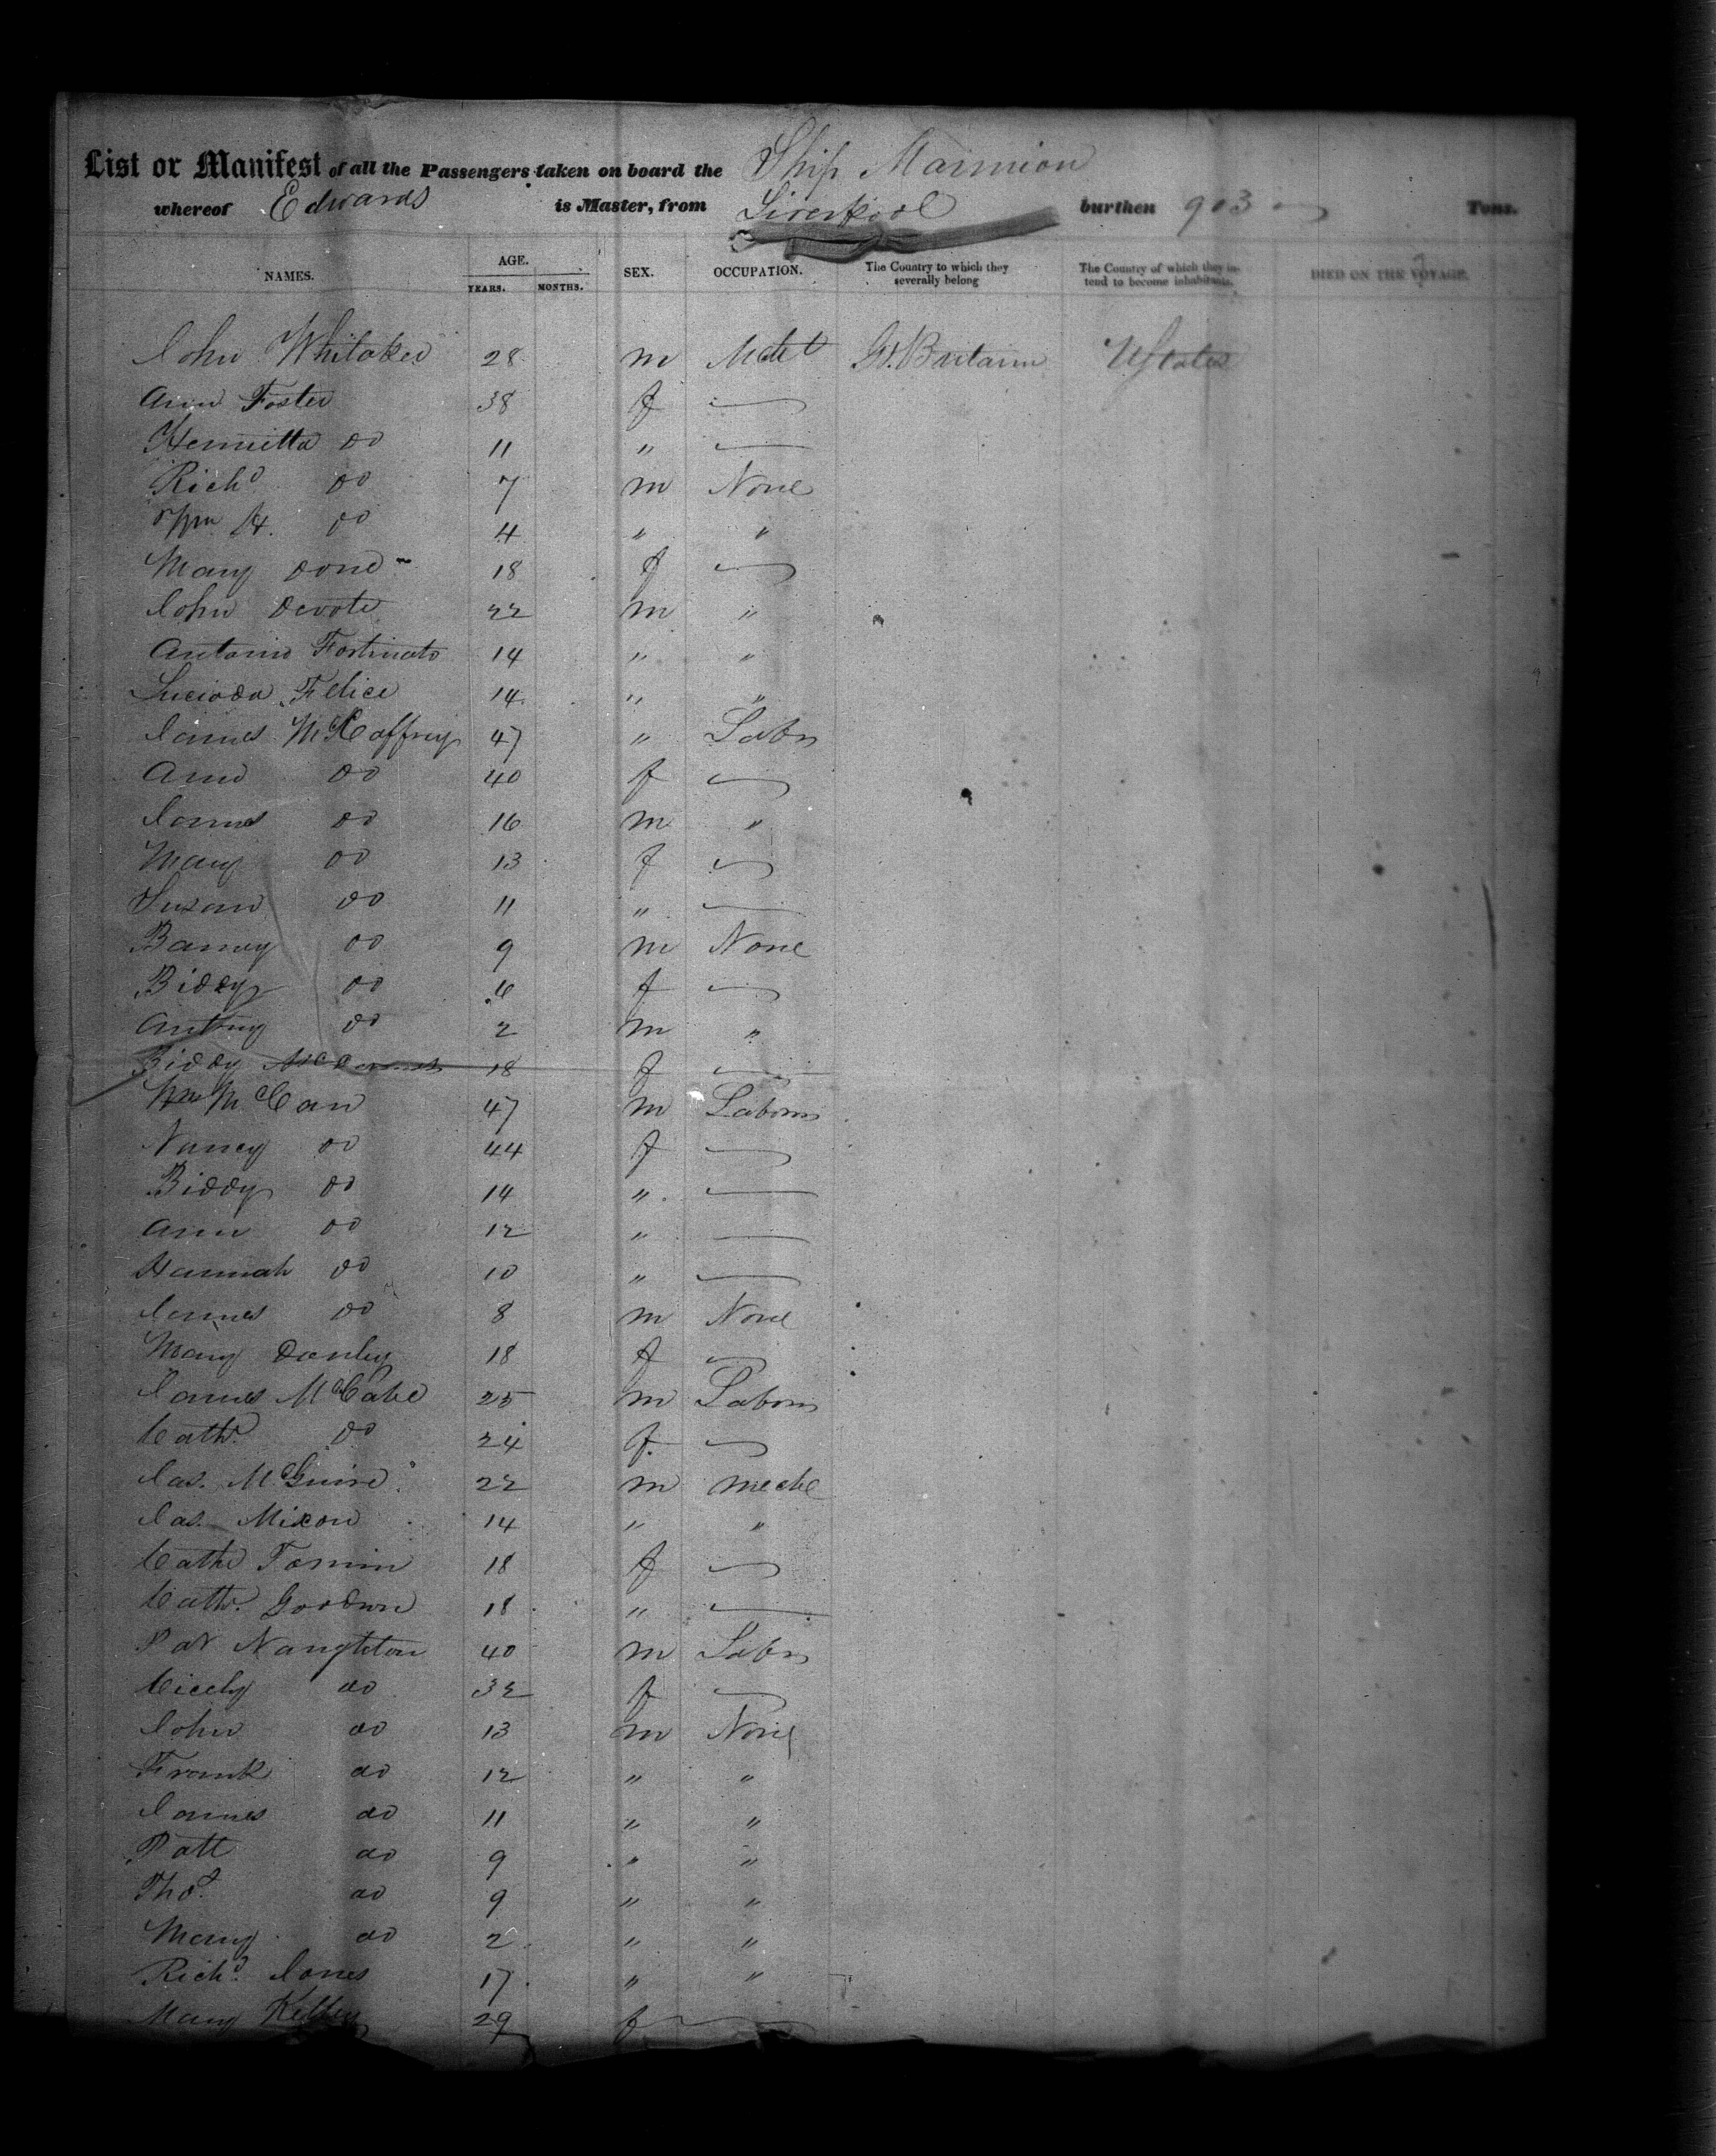 List or Manifest of all the Passengers taken on board the Ship Marmion
whereof Edwards is Master, from Liverpool burthen 903 Tons.
NAMES. AGE. YEARS. MONTHS. SEX. OCCUPATION. The Country to which they severally belong The Country of which they intend to become inhabitants. DIED ON THE VOYAGE.
John Whitaker 28 m Gt. Britain UStates
Ann Foster 38 f —
Henrietta do 11 " —
Richd. do 7 m None
Wm H. do 4 " "
Mary 18 f —
John Devoto 22 m "
Antonio Fortunato 14 " "
Felice 14 " "
James McCaffrey 47 " Labr
Ann do 40 f —
James do 16 m "
Mary do 13 f —
Susan do 11 " —
Barney do 9 m None
Biddy do 6 f —
Antony do 2 m "
Biddy 18 f —
Wm McCan 47 m Laborer
Nancy do 44 f —
Biddy do 14 " —
Ann do 12 " —
Hannah do 10 " —
James do 8 m None
Mary Danley 18 f —
James McCabe 25 m Laborer
Cath. do 24 f —
Jas. McGuire 22 m
Jas. Mixon 14 " "
Cathe 18 f —
Cath. Goodwn 18 " —
Pat Naughton 40 m Labr
Cicely do 32 f —
John do 13 m None
Frank do 12 " "
James do 11 " "
Patt do 9 " "
Thos. do 9 " "
Mary do 2 " "
Richd. Jones 17 " "
Mary Kelley 29 f —